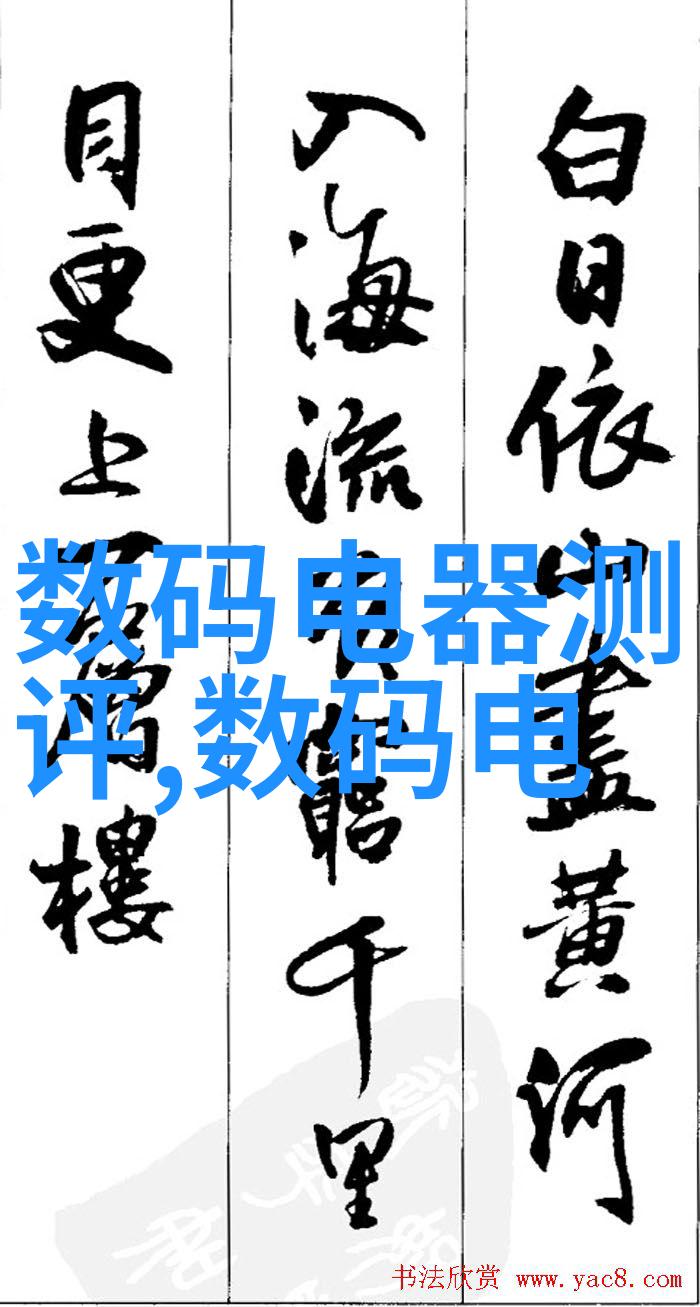 白日依山盡黄河
入海流欲窮千里
目更上一層樓
数码电器测
评,数码电
书法欣赏 www.yac8.com